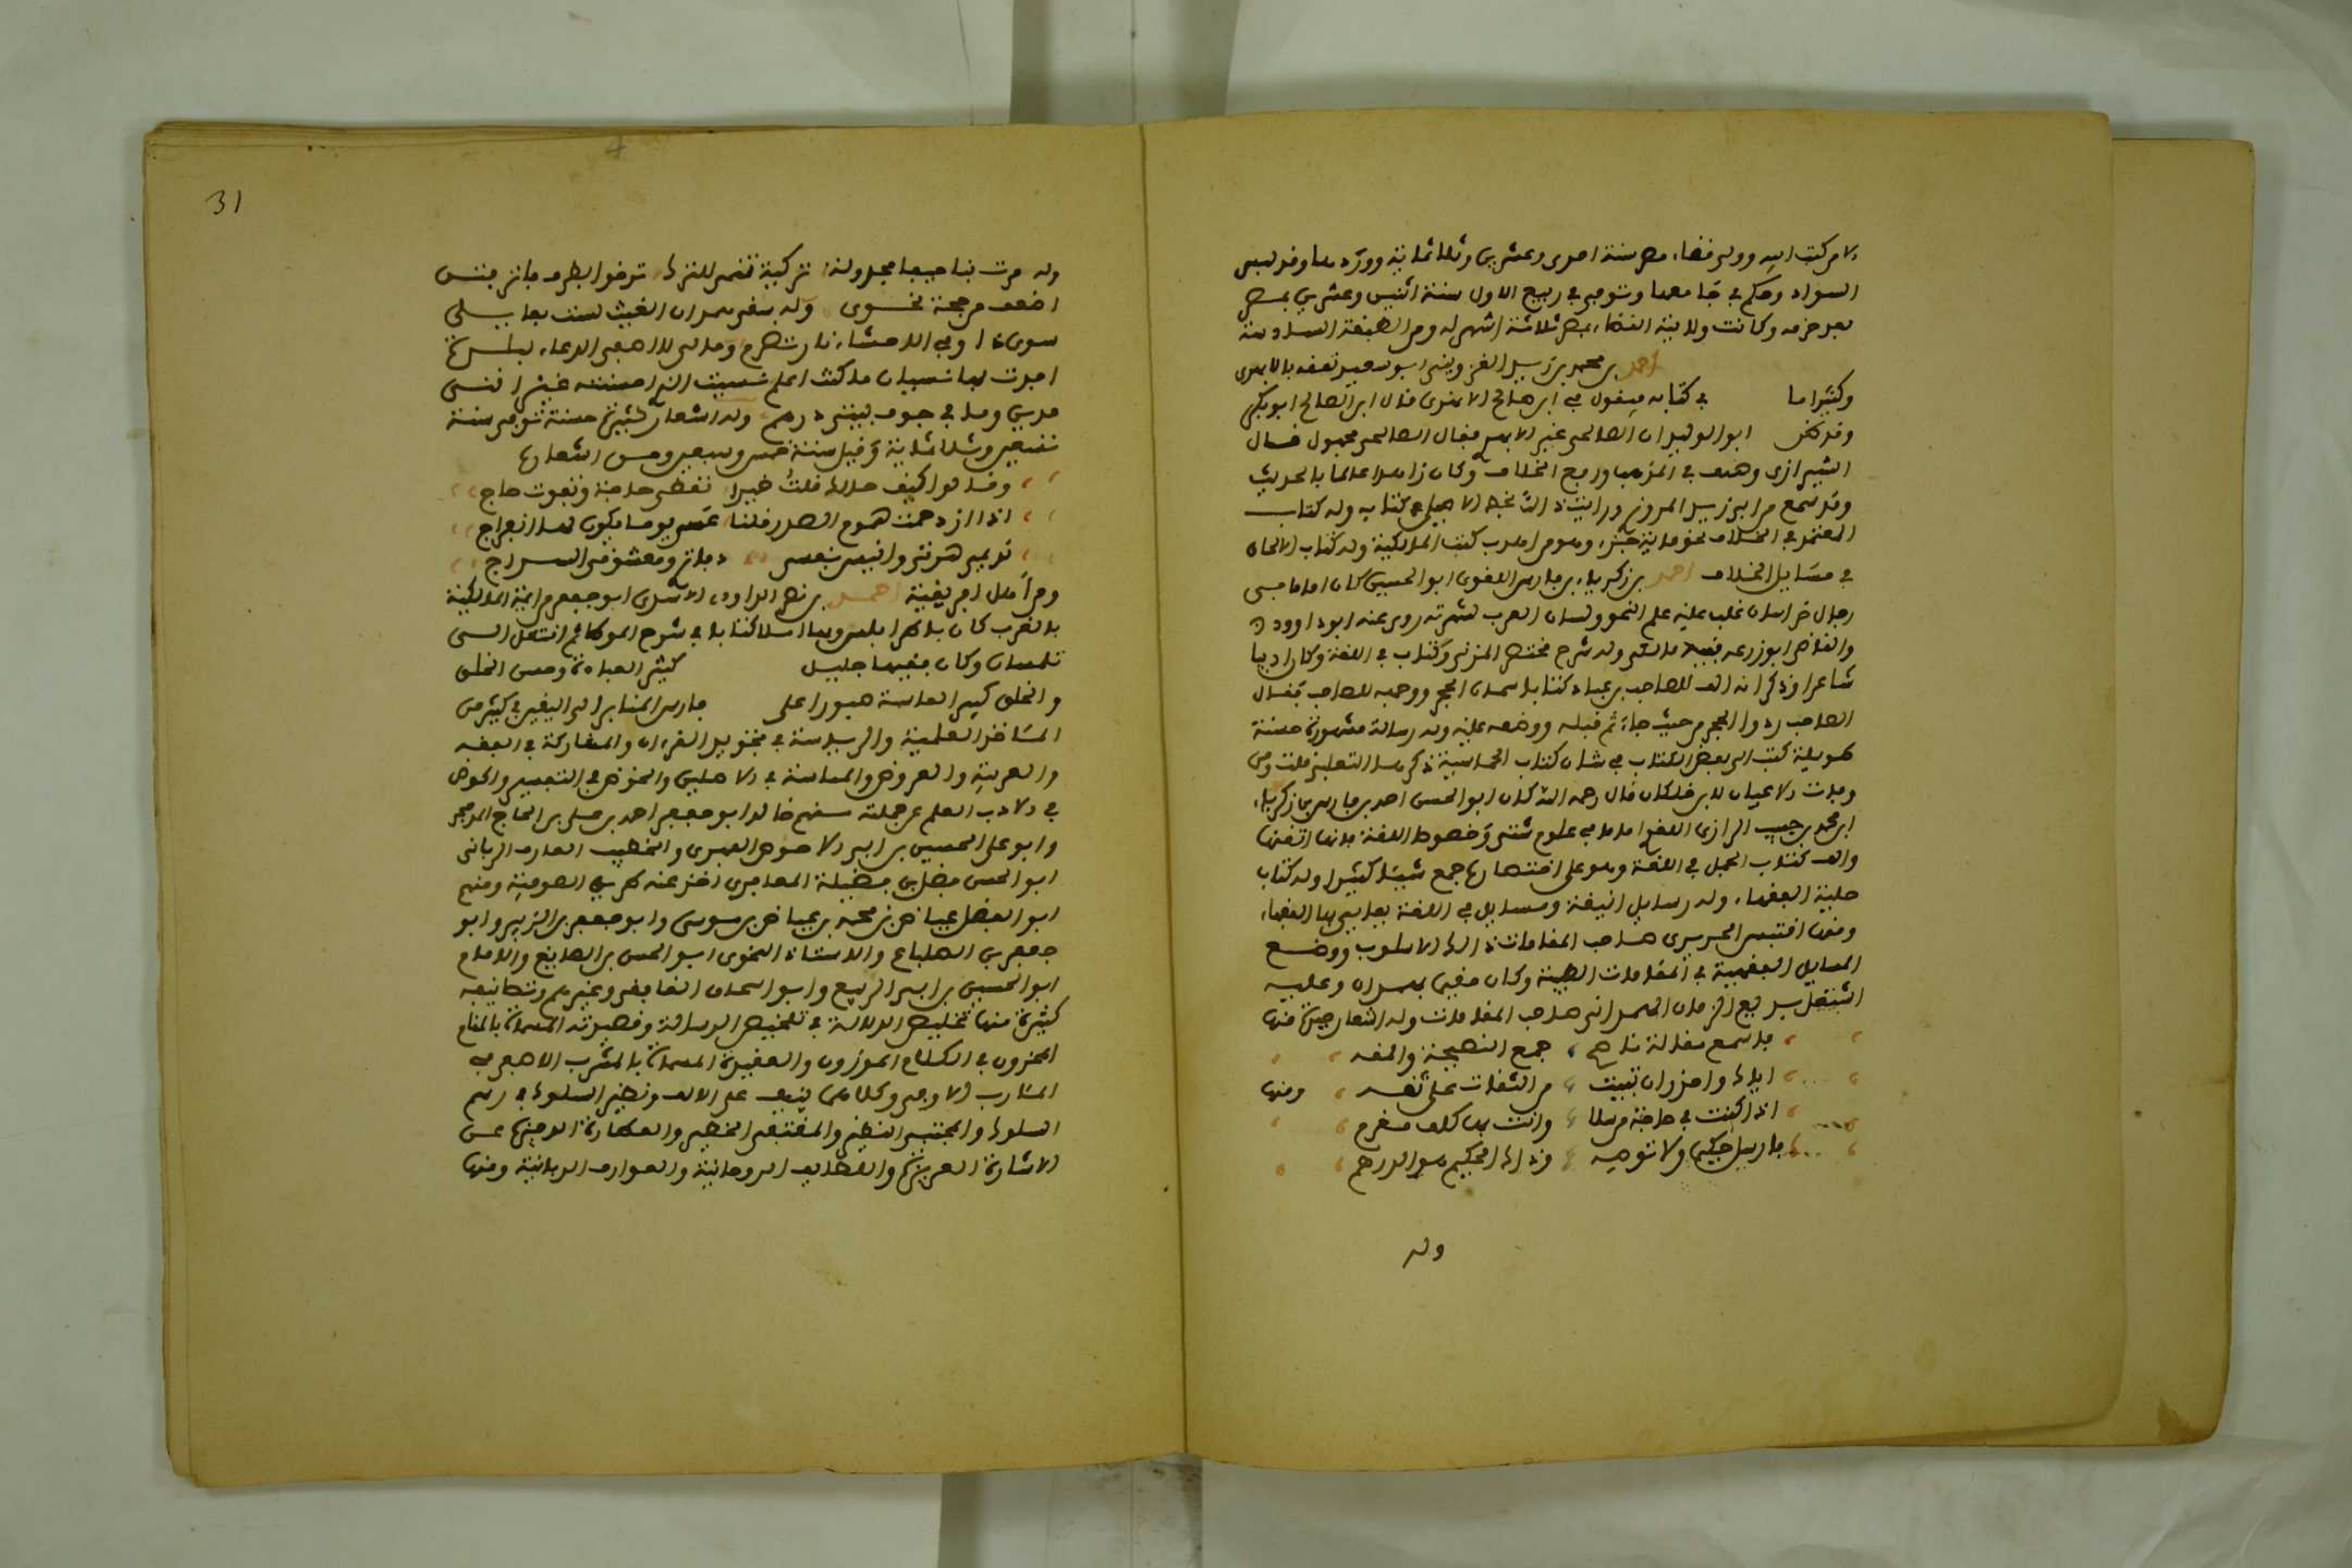 من كتب ابيه وولي قضاء مصر سنة احدى وعشرين وثلاثماية وورد ها وقد لبس
السواد وحكم في جامعها وتوفي في ربيع الاول سنة اثنين وعشرين بمصر
بعد عزله وكانت ولايته القضاء بمصر ثلاثة اشهر له ومن الطبقة السادسة
احمد بن محمد بن زيد القزويني ابو سعيد تفقه بالابهري
وكثيرا ما في كتابه يقول في ابي صالح الابهري قال ابي الصالح ابو بكر
وقد ظن ابو الوليد ان الصالحي غير الابهري فقال الصالحي مجهول قال
الشيرازي وصنف في المذهب والخلاف وكان زاهدا عالما بالحديث
وقد سمع من ابي زيد المروزي ورايت ذلك بخط الاصيلي في كتابه وله كتاب
المعتمد في الخلاف نحو ماية جزء وهو من اهذب كتب المالكية وله كتاب الالحاق
في مسايل الخلاف احمد بن زكرياء بن فارس اللغوي ابو الحسين كان اماما من
رجال خراسان غلب عليه علم النحو ولسان العرب شهرته روى عنه ابو ذر
والقاضي ابو زرعة فقيه مالكي وله شرح مختصر المزني وكتاب في اللغة وكان اديبا
شاعرا وذكر انه الف للصاحب بن عباد كتابا سماه الحجر ووجهه للصاحب فقال
الصاحب ردوا الحجر من حيث جاء ثم قبله ووصله عليه وله رسالة مشهورة حسنة
طويلة كتب الى بعض الكتاب في شان كتاب الحماسة ذكرها الثعالبي قلت ومن
وفيات الاعيان لابن خلكان قال رحمه الله كان ابو الحسين احمد بن فارس بن زكرياء
ابن محمد بن حبيب الرازي اللغوي اماما في علوم شتى وخصوصا اللغة فانه اتقنها
والف كتاب المجمل في اللغة وهو على اختصاره جمع شيئا كثيرا وله كتاب
حلية الفقهاء وله رسايل انيقة ومسايل في اللغة يعايي بها الفقهاء
ومنه اقتبس الحريري صاحب المقامات ذلك الاسلوب ووضع
المسايل الفقهية في المقامات الطيبية وكان مقيما بهمدان وعليه
اشتغل بديع الزمان الهمداني صاحب المقامات وله اشعار جيدة منها
فاسمع مقالة ناصح جمع النصيحة والمقه
اياك واحذر ان تبيت من الثقات على ثقه ومنها
اذا كنت في حاجة مرسلا وانت بها كلف مغرم
فارسل حكيما ولا توصه وذاك الحكيم هو الدرهم
وله
31
وله مرت بنا هيفا مجدولة تركية تنمى للترك ترنوا بطرف فاتر فتن
اضعف من حجة نحوي وله سقى همدان الغيث لست بقايل
سوى ذا وفي الاحشاء نار تضرم وما لي لا اصفي الدعاء لبلدة
افدت بها نسيان ما كنت اعلم نسيت الذي احسنته غير انني
مدين وما في جوف بيتي درهم وله اشعار كثيرة حسنة توفي سنة
تسعين وثلاثماية وقيل سنة خمس وسبعين ومن اشعاره
وقالوا كيف حالك قلت خيرا تقضى حاجة وتفوت حاج
اذا ازدحمت هموم الصدر قلنا عسى يوما يكون لها انفراج
نديمي هرتي وانيس نفسي دفاتر ومعشوقي السراج
ومن اهل افريقية احمد بن نصر الداودي الاسدي ابو جعفر من ايمة المالكية
بالغرب كان بطرابلس وبها املا كتابه في شرح الموطا ثم انتقل الى
تلمسان وكان فقيها جليل كثير العبادة وحسن الخلق
والخلق كبير العامة صبورا على فارس المنابر الى اليقين في كثير من
المسايل العلمية والرياسة في تجويد القرءان والمشاركة في الفقه
والعربية والعروض والمماسة في الاصلين والخوض في التفسير والخوض
في الادب العلم عن جملة منهم خاله ابو جعفر احمد بن علي بن الحاج المذحجي
وابو علي الحسين بن ابي الاحوص الفهري والخطيب العارف الرباني
ابو الحسن فضل بن فضيلة المعافري اخذ عنه طريق الصوفية ومنهم
ابو الفضل عياض بن محمد بن عياض بن موسى وابو جعفر بن الزبير وابو
جعفر بن الطباع والاستاذ النحوي ابو الحسن بن الصايغ والامام
ابو الحسين بن ابي الربيع وابو اسحاق الغافقي وغيرهم وتصانيفه
كثيرة منها تخليص الدلالة في تلخيص الرسالة وقصيدته المسماة بالمقام
المخزون في الكلام الموزون والعقيدة المسماة بالمشرب الاصفى في
المئارب الاوفى وكلاهما ينيف على الالف ونظم السلوك في رسم
السلوك والمجتبى النضير والمقتنى الخطير والعبارة الوجيزة عن
الاشارة العزيزة واللطايف الروحانية والعوارف الربانية ومنها